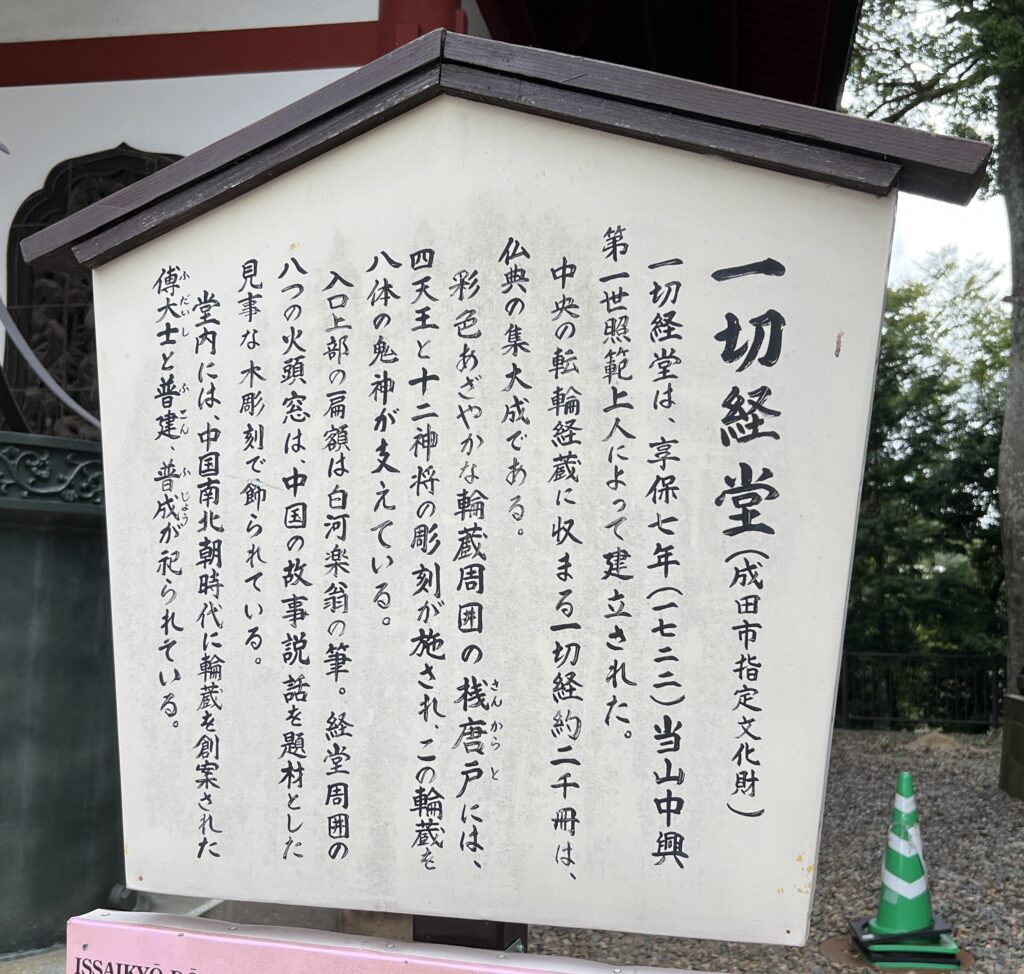 一切経堂(成田市指定文化財)
一切経堂は、享保七年(一七二二)当山中興
第一世照範上人によって建立された。
中央の転輪経蔵に収まる一切経約二千冊は、
仏典の集大成である。
彩色あざやかな輪蔵周囲の桟唐戸には、
さんからと
四天王と十二神将の彫刻が施され、この輪蔵を
八体の鬼神が支えている。
入口上部の扁額は白河楽翁の筆。経堂周囲の
八つの火頭窓は中国の故事説話を題材とした
見事な木彫刻で飾られている。
堂内には、中国南北朝時代に輪蔵を創案された
傅大士と普建、普成が祀られている。
ふだいし ふこん ふじょう
ISSAIKYŌ